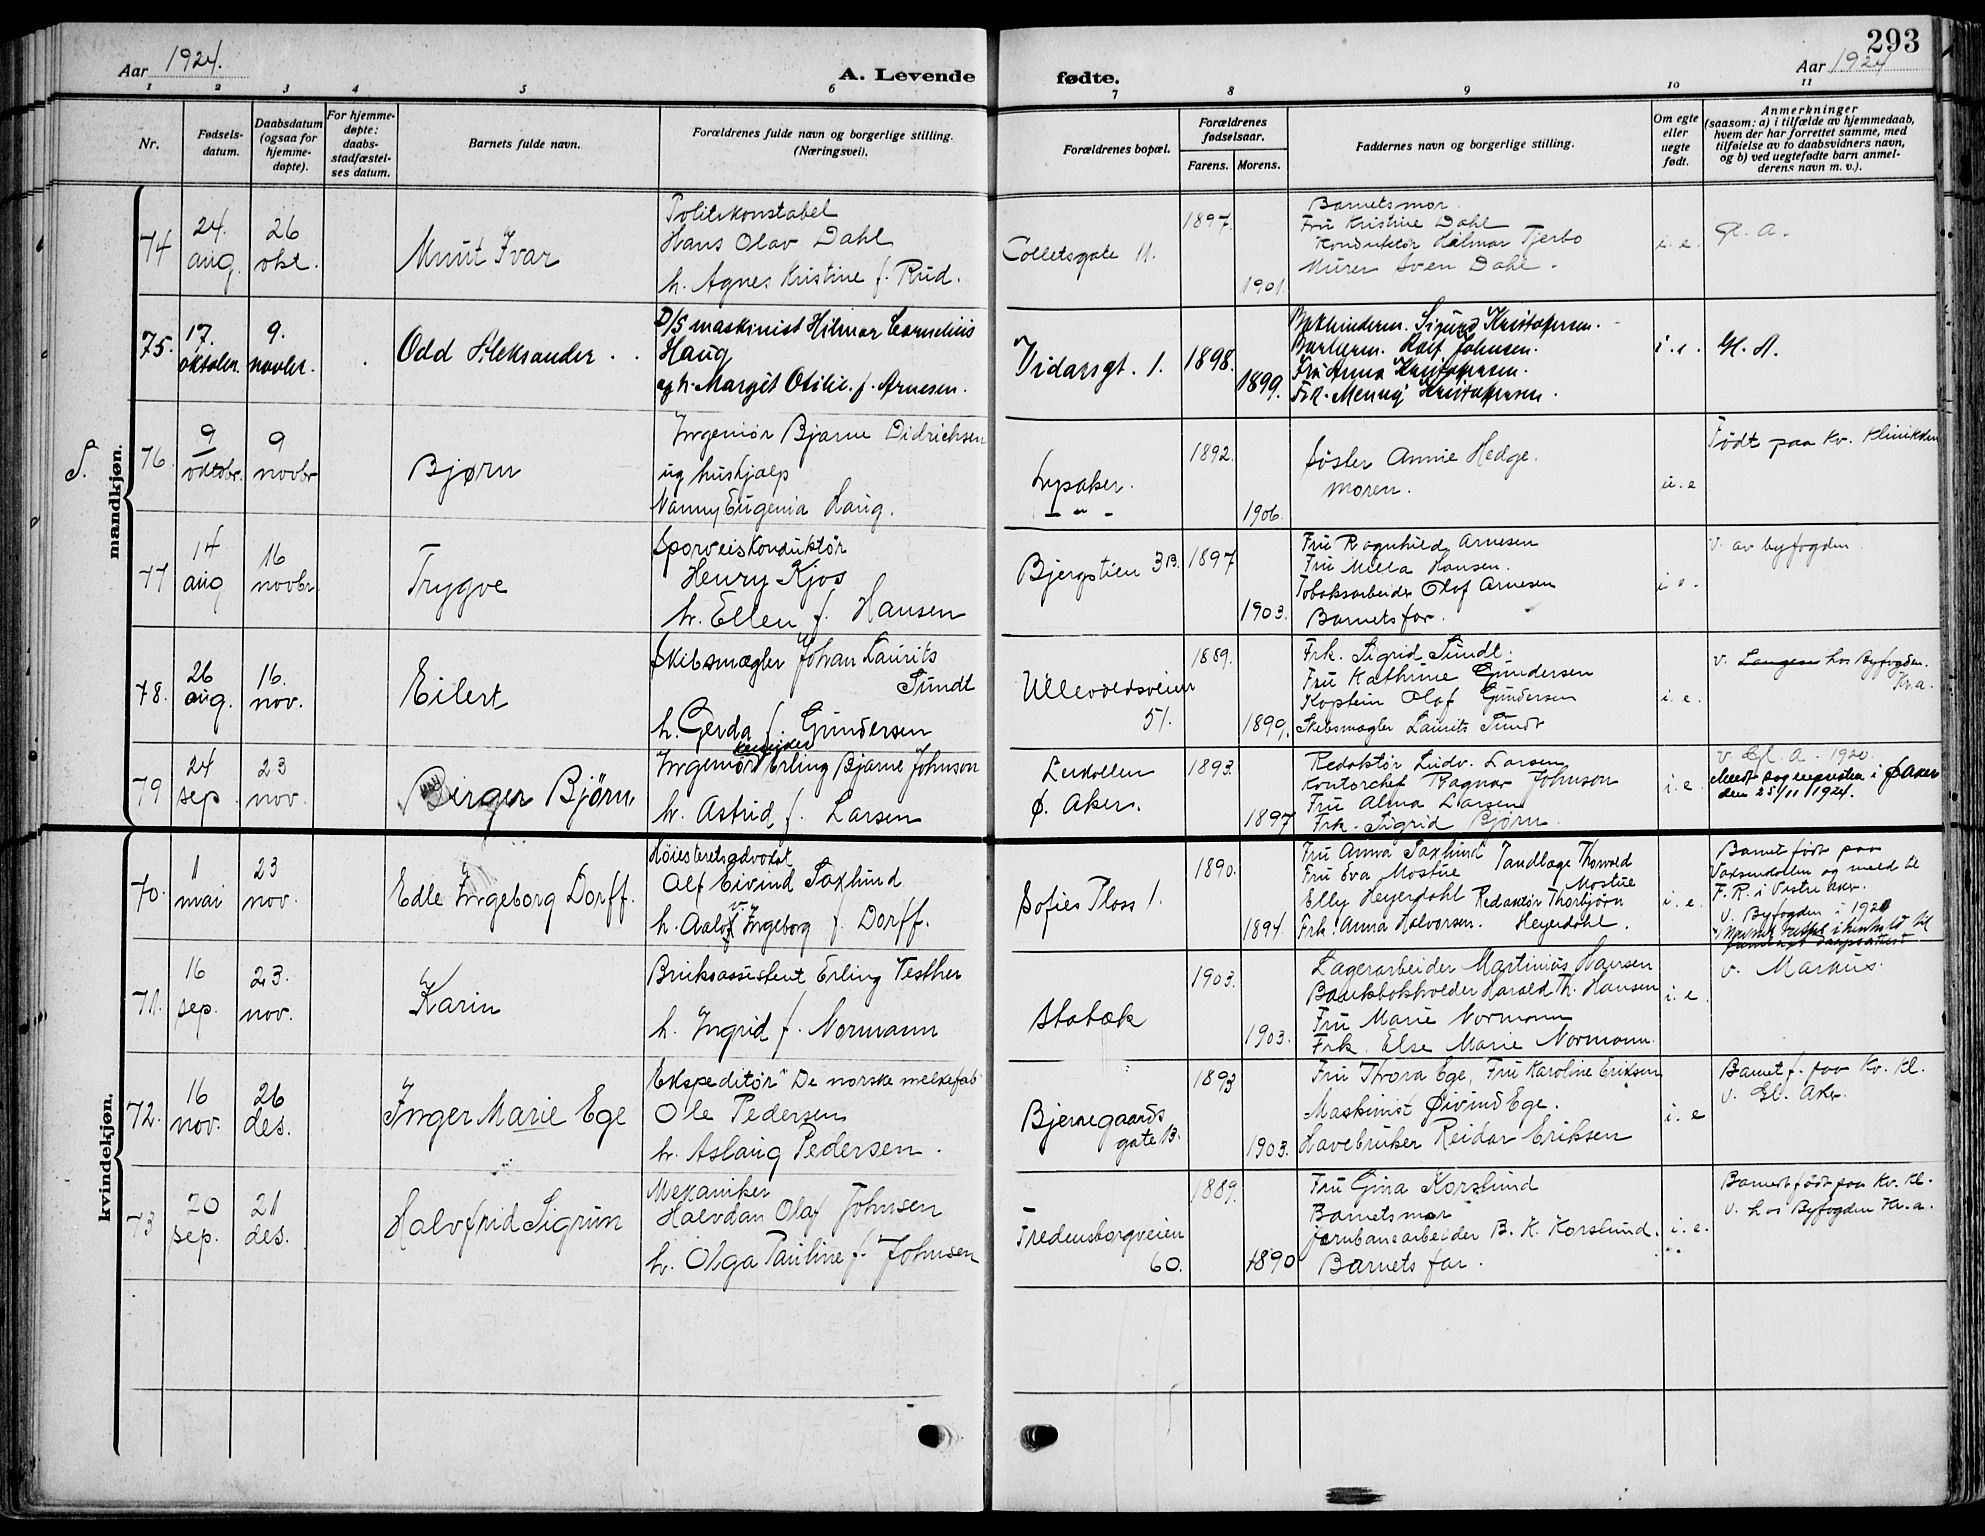 293
Aar 1924.
A. Levende fødte.
Aar 1924
1 2 3 4 5 6 7 8 9 10 11
Nr.
Fødsels-datum.
Daabsdatum (ogsaa for hjemme-døpte).
For hjemme-døpte: daabs-stadfæstel-ses datum.
Barnets fulde navn.
Forældrenes fulde navn og borgerlige stilling. (Næringsvei).
Forældrenes bopæl.
Forældrenes fødselsaar.
Farens. Morens.
Faddernes navn og borgerlige stilling.
Om egte eller uegte født.
Anmerkninger (saasom: a) i tilfælde av hjemmedaab, hvem der har forrettet samme, med tilføielse av to daabsvidners navn, og b) ved uegtefødte barn anmel-derens navn m. v.).
mandkjøn.
74
24. aug.
26 okt.
Knut Ivar
Politikonstabel
Hans Olav Dahl
h. Agnes Kristine f. Rud.
Colletsgate 11.
1897.
1901.
Barnets mor.
Fru Kristine Dahl
Konduktør Hilmar Tjerbo
Murer Sven Dahl.
i. e.
Gl. A.
75.
17. oktober
9. novbr.
Odd Aleksander
D/S maskinist Hilmar Cornelius
Haug
og h. Margit Otilie. f. Arnesen.
Vidarsgt. 1.
1898.
1899.
Sigurd Kristofersen.
Johnsen.
Fru Anna Kristofersen.
Frk. Menny Kristofersen.
i. e.
Gl. A.
S.
76.
9 oktobr.
9 novbr
Bjørn
Ingeniør Bjarne Didrichsen
og hushjælp
Nanny Eugenia Haug.
Lysaker.
— " —
1892.
1906.
Søster Annie Hedge.
moren.
u. e
Født paa Kv. Klinikken
77
14 aug
16 novbr.
Trygve
Sporveiskonduktør
Henry Kjos
h. Ellen f. Hansen
Bjergstien 3B.
1897
1903.
Fru Ragnhild Arnesen
Fru Milla Hansen.
Tobaksarbeider Olaf Arnesen
Barnets far.
i. e.
V. av byfogden.
78.
26 aug.
16. nov.
Eilert
Skibsmægler Johan Laurits
Sundt
h. Gerda f. Gundersen
Ullevoldsveien
51.
1889.
1899.
Frk. Sigrid Sundt.
Fru Kathrine Gundersen
Kaptein Olaf Gundersen
Skibsmægler Laurits Sundt
i. e.
v. hos Byfogden.
Kr.a.
79
24 sep.
23 nov.
Birger Bjørn
Ingeniør Erling Bjarne Johnson
h. Astrid f. Larsen
Ø. Aker.
1893.
1897
Redaktør Ludv. Larsen
Kontorchef Ragnar Johnson
Fru Alma Larsen
Frk. Sigrid Bjørn.
i. e.
v. Gl. A. 1920.
Meldt sognepresten i Ø Aker
den 25/11 1924.
kvindekjøn.
70.
11 mai
23 nov.
Edle Ingeborg Dorff.
Høiesteretsadvokat
Olf Eivind Saxlund
h. Ingeborg f. Dorff.
Sofies Plass 1.
1890.
1894.
Fru Anna Saxlund Tandlæge Thorvald
Fru Eva Mostue Mostue
Elly Heyerdahl Redaktør Thorbjørn
Frk. Anna Halvorsen. Heyerdahl.
i. e.
Barnet født paa
Voksenkollen og meld til
F. R. i Vestre Aker.
v. Byfogden i 1920
71.
16 sep.
23. nov.
Karin
Bruksassistent Erling Testher
h. Ingrid f. Normann
Stabæk
1903.
1903.
Lagerarbeider Martinius Hansen
Bankbokholder Harald Th. Hansen
Fru Marie Normann
Frk. Else Marie Normann.
i. e.
v. Markus.
72.
16 nov.
26 des.
Inger Marie Ege
Ekspeditør "De norske melkefab
Ole Pedersen
h. Aslaug Pedersen.
Bjerregaards
gate 13.
1893
1903.
Fru Thora Ege, Fru Karoline Eriksen
Maskinist Øivind Ege.
Havebruker Reidar Eriksen
i. e
Barnet f. paa Kv. Kl.
v. Gl. Aker.
73
20 sep.
21 des.
Halvfrid Sigrun
Mekaniker
Halvdan Olaf Johnsen
h. Olga Pauline f. Johnsen
Fredensborgveien
60.
1889.
1890
Fru Gina Korslund
Barnets mor
Jernbanearbeider B. K. Korslund.
Barnets far.
i. e.
Barnet født paa Kv. Kl.
v. hos Byfogden Kr.a.